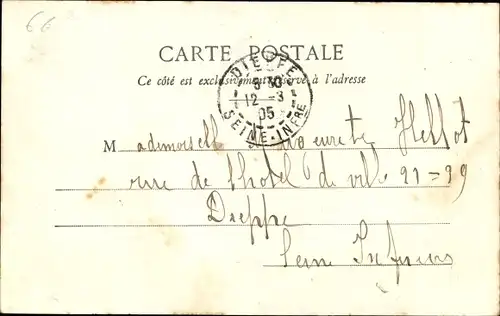 66
CARTE POSTALE
Ce côté est exclusivement réservé à l'adresse
DIEPPE
5 30
12 - 3
05
SEINE-INFRE
Mademoiselle Hellot
rue de l'hotel de ville 21-39
Dieppe
Seine Inferieure